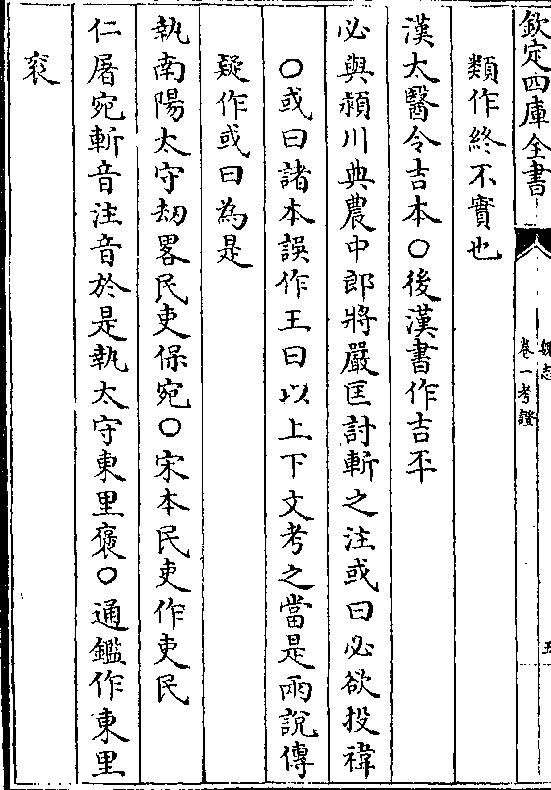 欽定四庫全書
魏志
卷一考證
五
類作終不實也
漢太醫令吉本○後漢書作吉平
必與潁川典農中郎將嚴匡討斬之注或曰必欲投禕
○或曰諸本誤作王曰以上下文考之當是兩說傳
疑作或曰為是
執南陽太守劫畧民吏保宛○宋本民吏作吏民
仁屠宛斬音注音於是執太守東里襃○通鑑作東里
衮